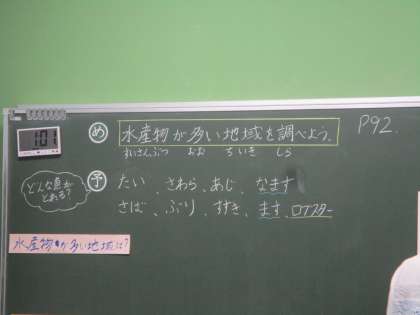 101
め 水産物が多い地域を調べよう。 P92.
すいさんぶつ おお ちいき しら
予 たい、さわら、あじ、なます
さば、ぶり、すずき、ます、ロブスター
どんな魚が
とれる?
水産物が多い地域は?